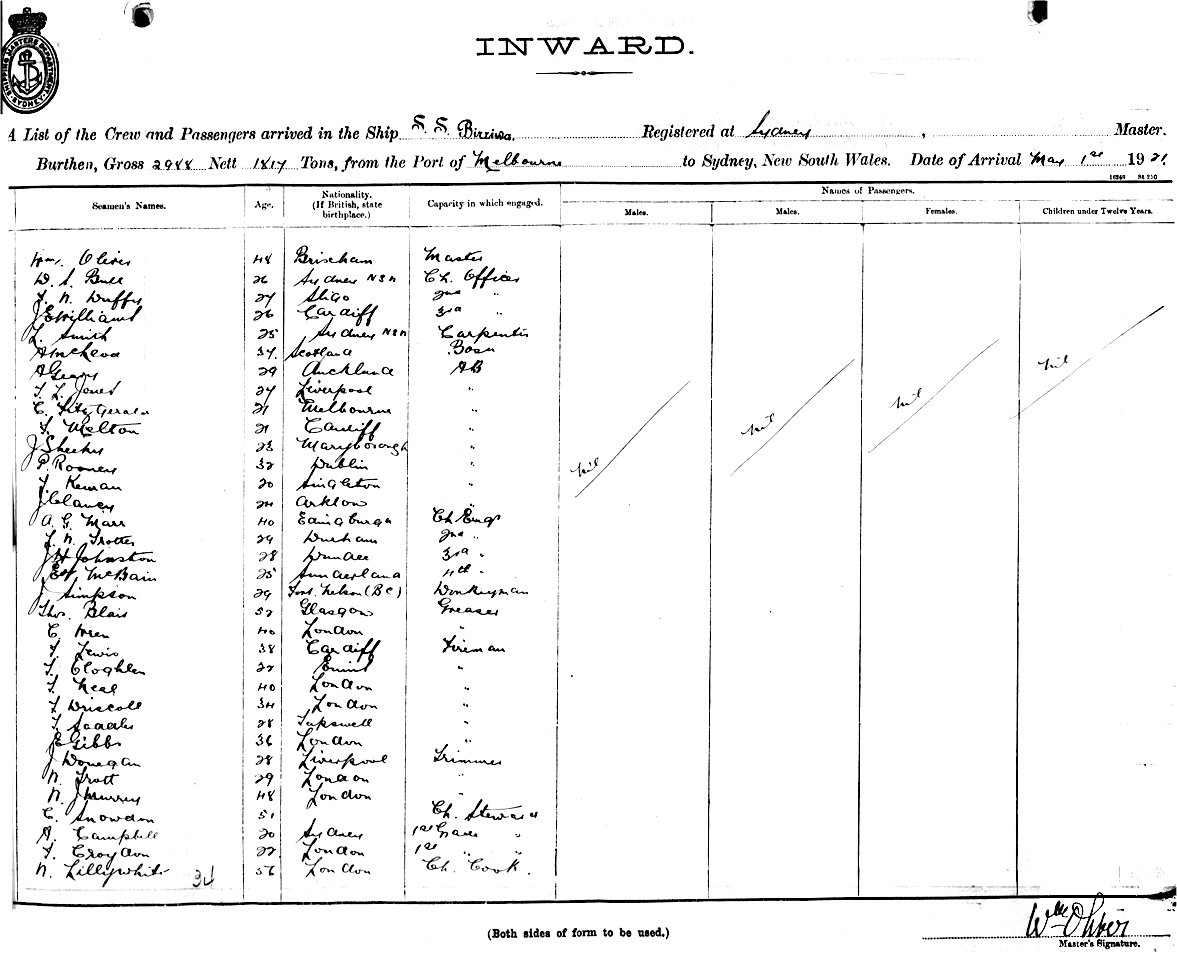 SHIPPING MASTERS DEPARTMENT SYDNEY
INWARD.
A List of the Crew and Passengers arrived in the Ship S. S. Birriwa. Registered at Sydney , Master.
Burthen, Gross 2988 Nett 1817 Tons, from the Port of Melbourne to Sydney, New South Wales. Date of Arrival May 1st 1921.
Seamen's Names. Age. Nationality. (If British, state birthplace.) Capacity in which engaged. Names of Passengers.
Males. Males. Females. Children under Twelve Years.
Wm. Oliver 48 Brixham Master
W. S. Bull 26 Sydney NSW Ch. Officer
J. N. Duffy 27 Sligo 2nd "
J E Williams 26 Cardiff 3rd "
Smith 25 Sydney NSW Carpenter
A McLeod 37 Scotland Bosn
A Geary 29 Auckland AB
L. Jones 27 Liverpool "
C. Fitzgerald 21 Melbourne "
Melton 21 Cardiff "
J Sheehy 23 Maryborough "
P. Rooney 32 Dublin "
Kernan 20 Singleton "
J Clancy 24 Arklow "
A. G. Marr 40 Edinburgh Ch Engr
N. Trotter 29 Durham 2nd "
J H Johnston 28 Dundee 3rd "
McBain 25 Sunderland 4th "
J Simpson 29 Fort Nelson (BC) Donkeyman
Thos. Blair 52 Glasgow Greaser
C. Wren 40 London "
Lewis 38 Cardiff Fireman
Cloghlen 22 "
Neal 40 London "
Driscoll 34 London "
28 "
E Gibbs 36 London "
J Donegan 28 Liverpool Trimmer
W. Trott 29 London "
W. J Murray 48 London
C. Snowdon 51 Ch. Steward
A. Campbell 20 Sydney 1st "
Croydon 22 London 1st " "
W. Lillywhite 34 56 London Ch. Cook.
nil nil nil nil
Wm Oliver
(Both sides of form to be used.)
Master's Signature.